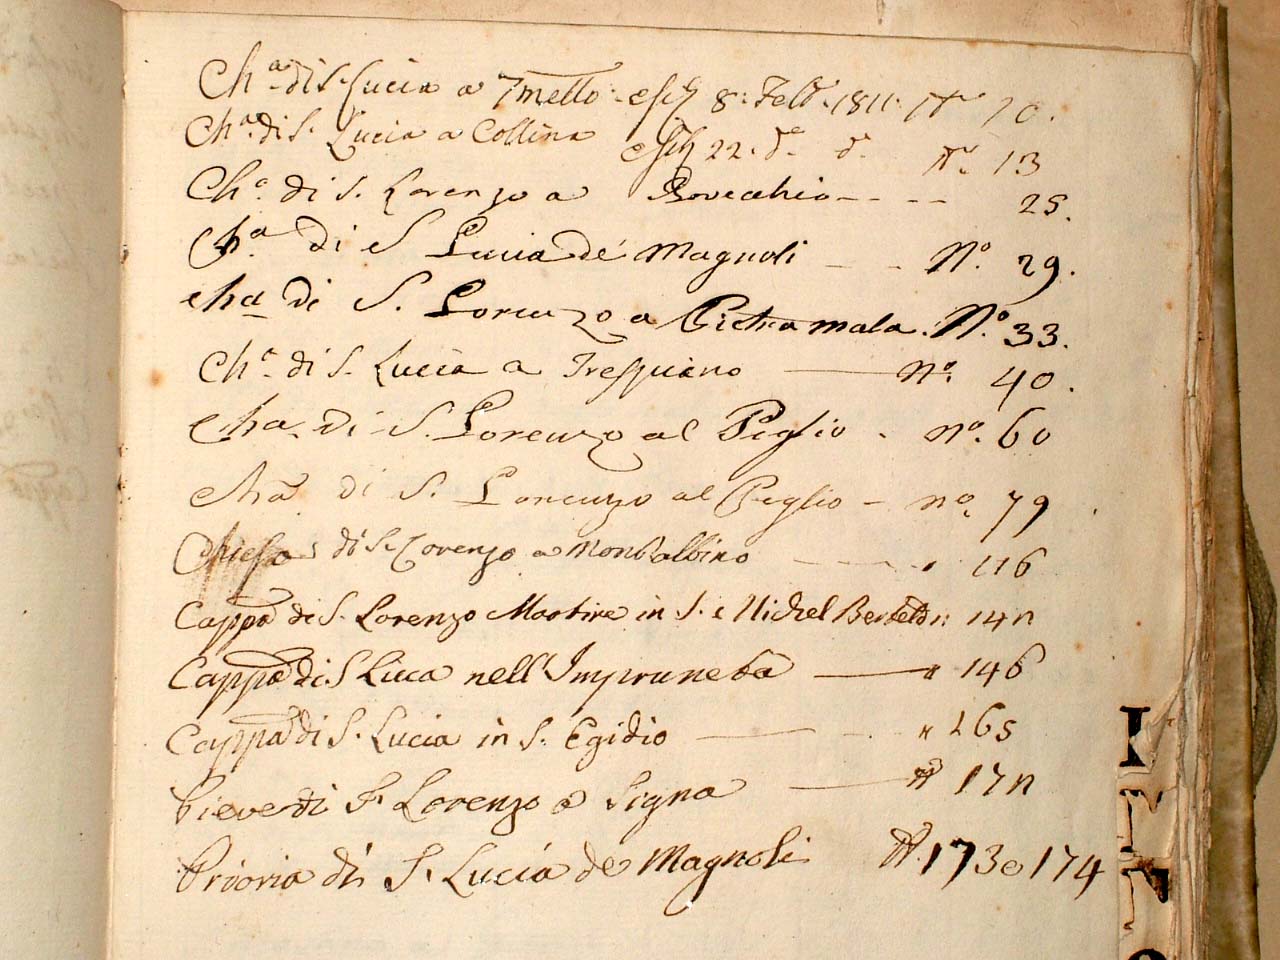 Chª. di S. Lucia a 7mello. 8. Feb. 1811. Nº 10.
Chª. di S. Lucia a Collina 22. dº. d. Nº. 13
Chª. di S. Lorenzo a Rovecchio - - - - 25.
Chª di S Lucia de' Magnoli - - Nº. 29.
Cha di S. Lorenzo a Pietramala. Nº. 33.
Chª. di S. Lucia a Trespiano — Nº. 40.
Cha di S. Lorenzo al Peglio. nº. 60
Cha di S. Lorenzo al Peglio - nº. 79
Chiesa di S. Lorenzo a Montalbino - - - 116
Cappª di S. Lorenzo Martire in S. Michel Berteldi 147
Cappª di S Luca nell'Impruneta — " 146
Cappª di S. Lucia in S. Egidio — - - " 165
Pieve di S. Lorenzo a Signa — Nº 177
Prioria di S. Lucia de Magnoli Nº. 173 e 174
I